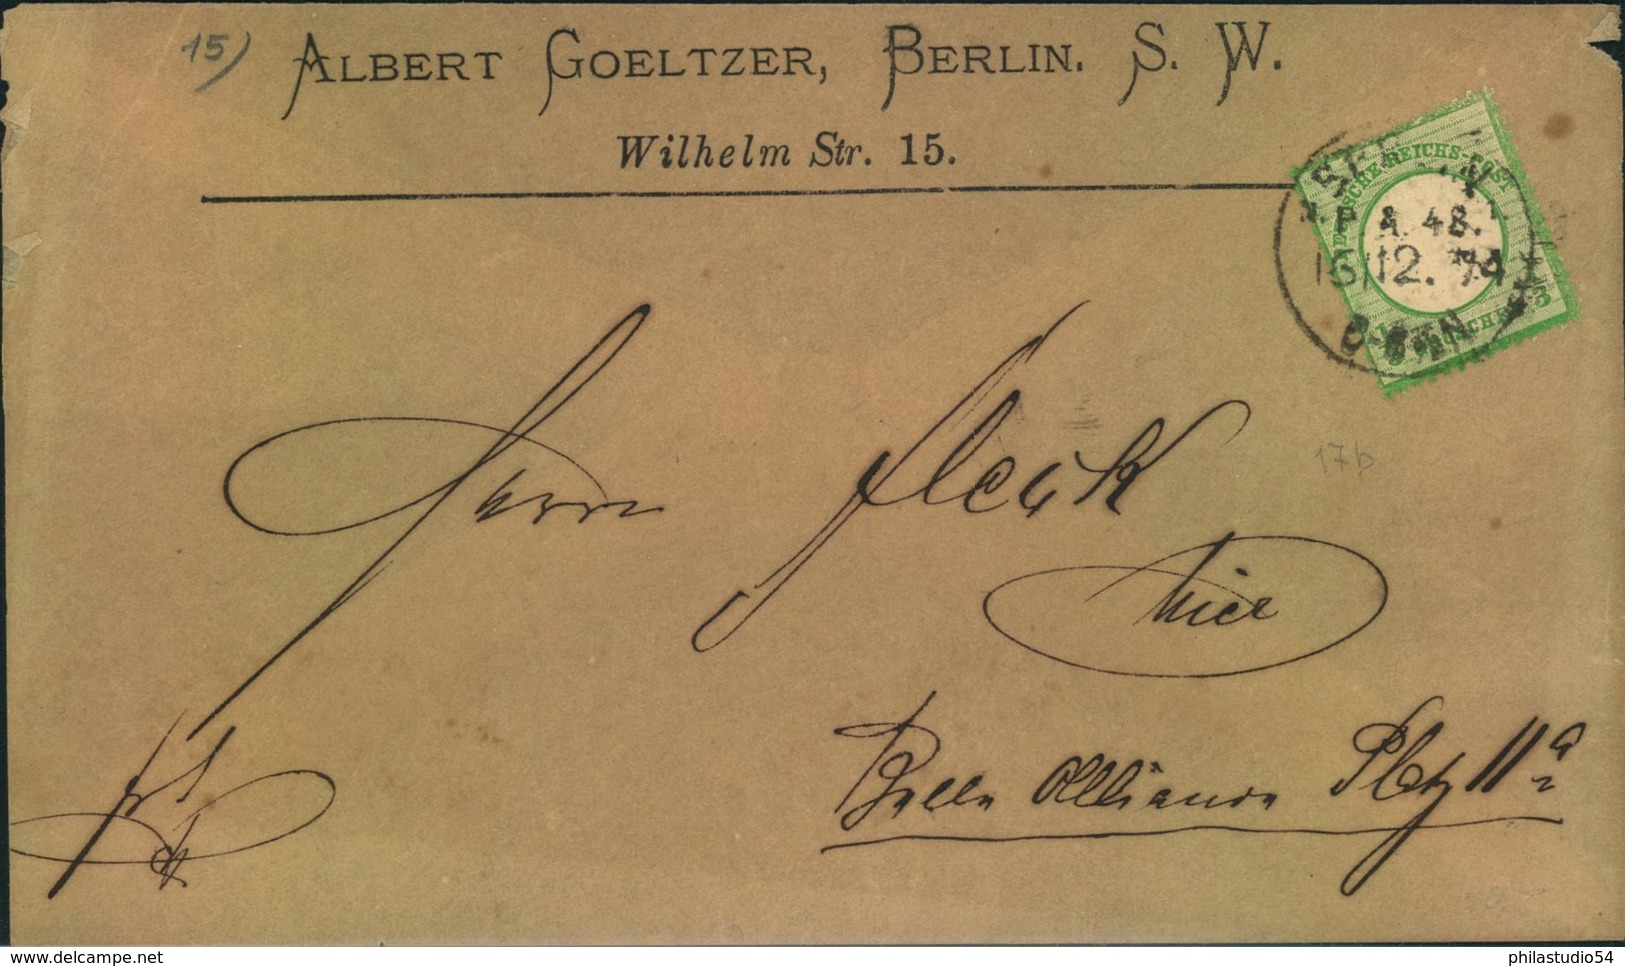 15)
ALBERT GOELTZER, BERLIN. S. W.
Wilhelm Str. 15.
REICHS-POST
P. A. 48.
12. 74
17b
Herrn Fleck
hier
Belle Alliance Platz 11a
delcampe.net
philastudio54